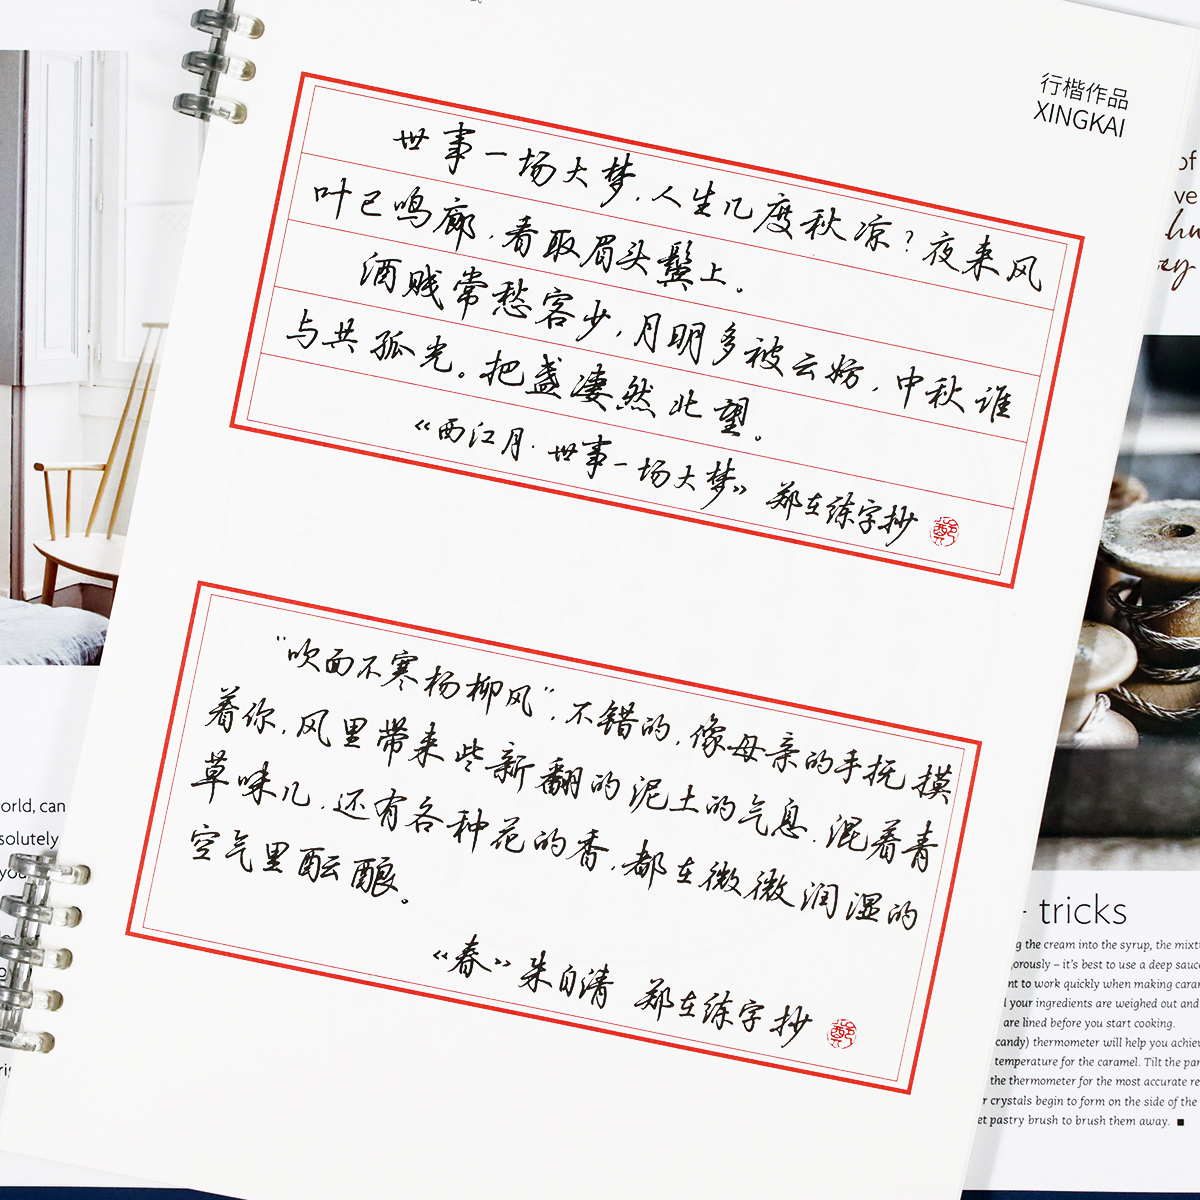 行楷作品
XINGKAI
世事一场大梦，人生几度秋凉？夜来风
叶已鸣廊，看取眉头鬓上。
酒贱常愁客少，月明多被云妨，中秋谁
与共孤光。把盏凄然北望。
《西江月·世事一场大梦》 郑在练字抄
鄭
“吹面不寒杨柳风”，不错的，像母亲的手抚摸
着你，风里带来些新翻的泥土的气息，混着青
草味儿，还有各种花的香，都在微微润湿的
空气里酝酿。
《春》朱自清 郑在练字抄
鄭
of
ve
orld, can
solutely
tricks
g the cream into the syrup, the mixtu
orously – it's best to use a deep sauce
nt to work quickly when making caram
l your ingredients are weighed out and
are lined before you start cooking.
candy) thermometer will help you achiev
temperature for the caramel. Tilt the pan
the thermometer for the most accurate re
r crystals begin to form on the side of the
et pastry brush to brush them away. ■